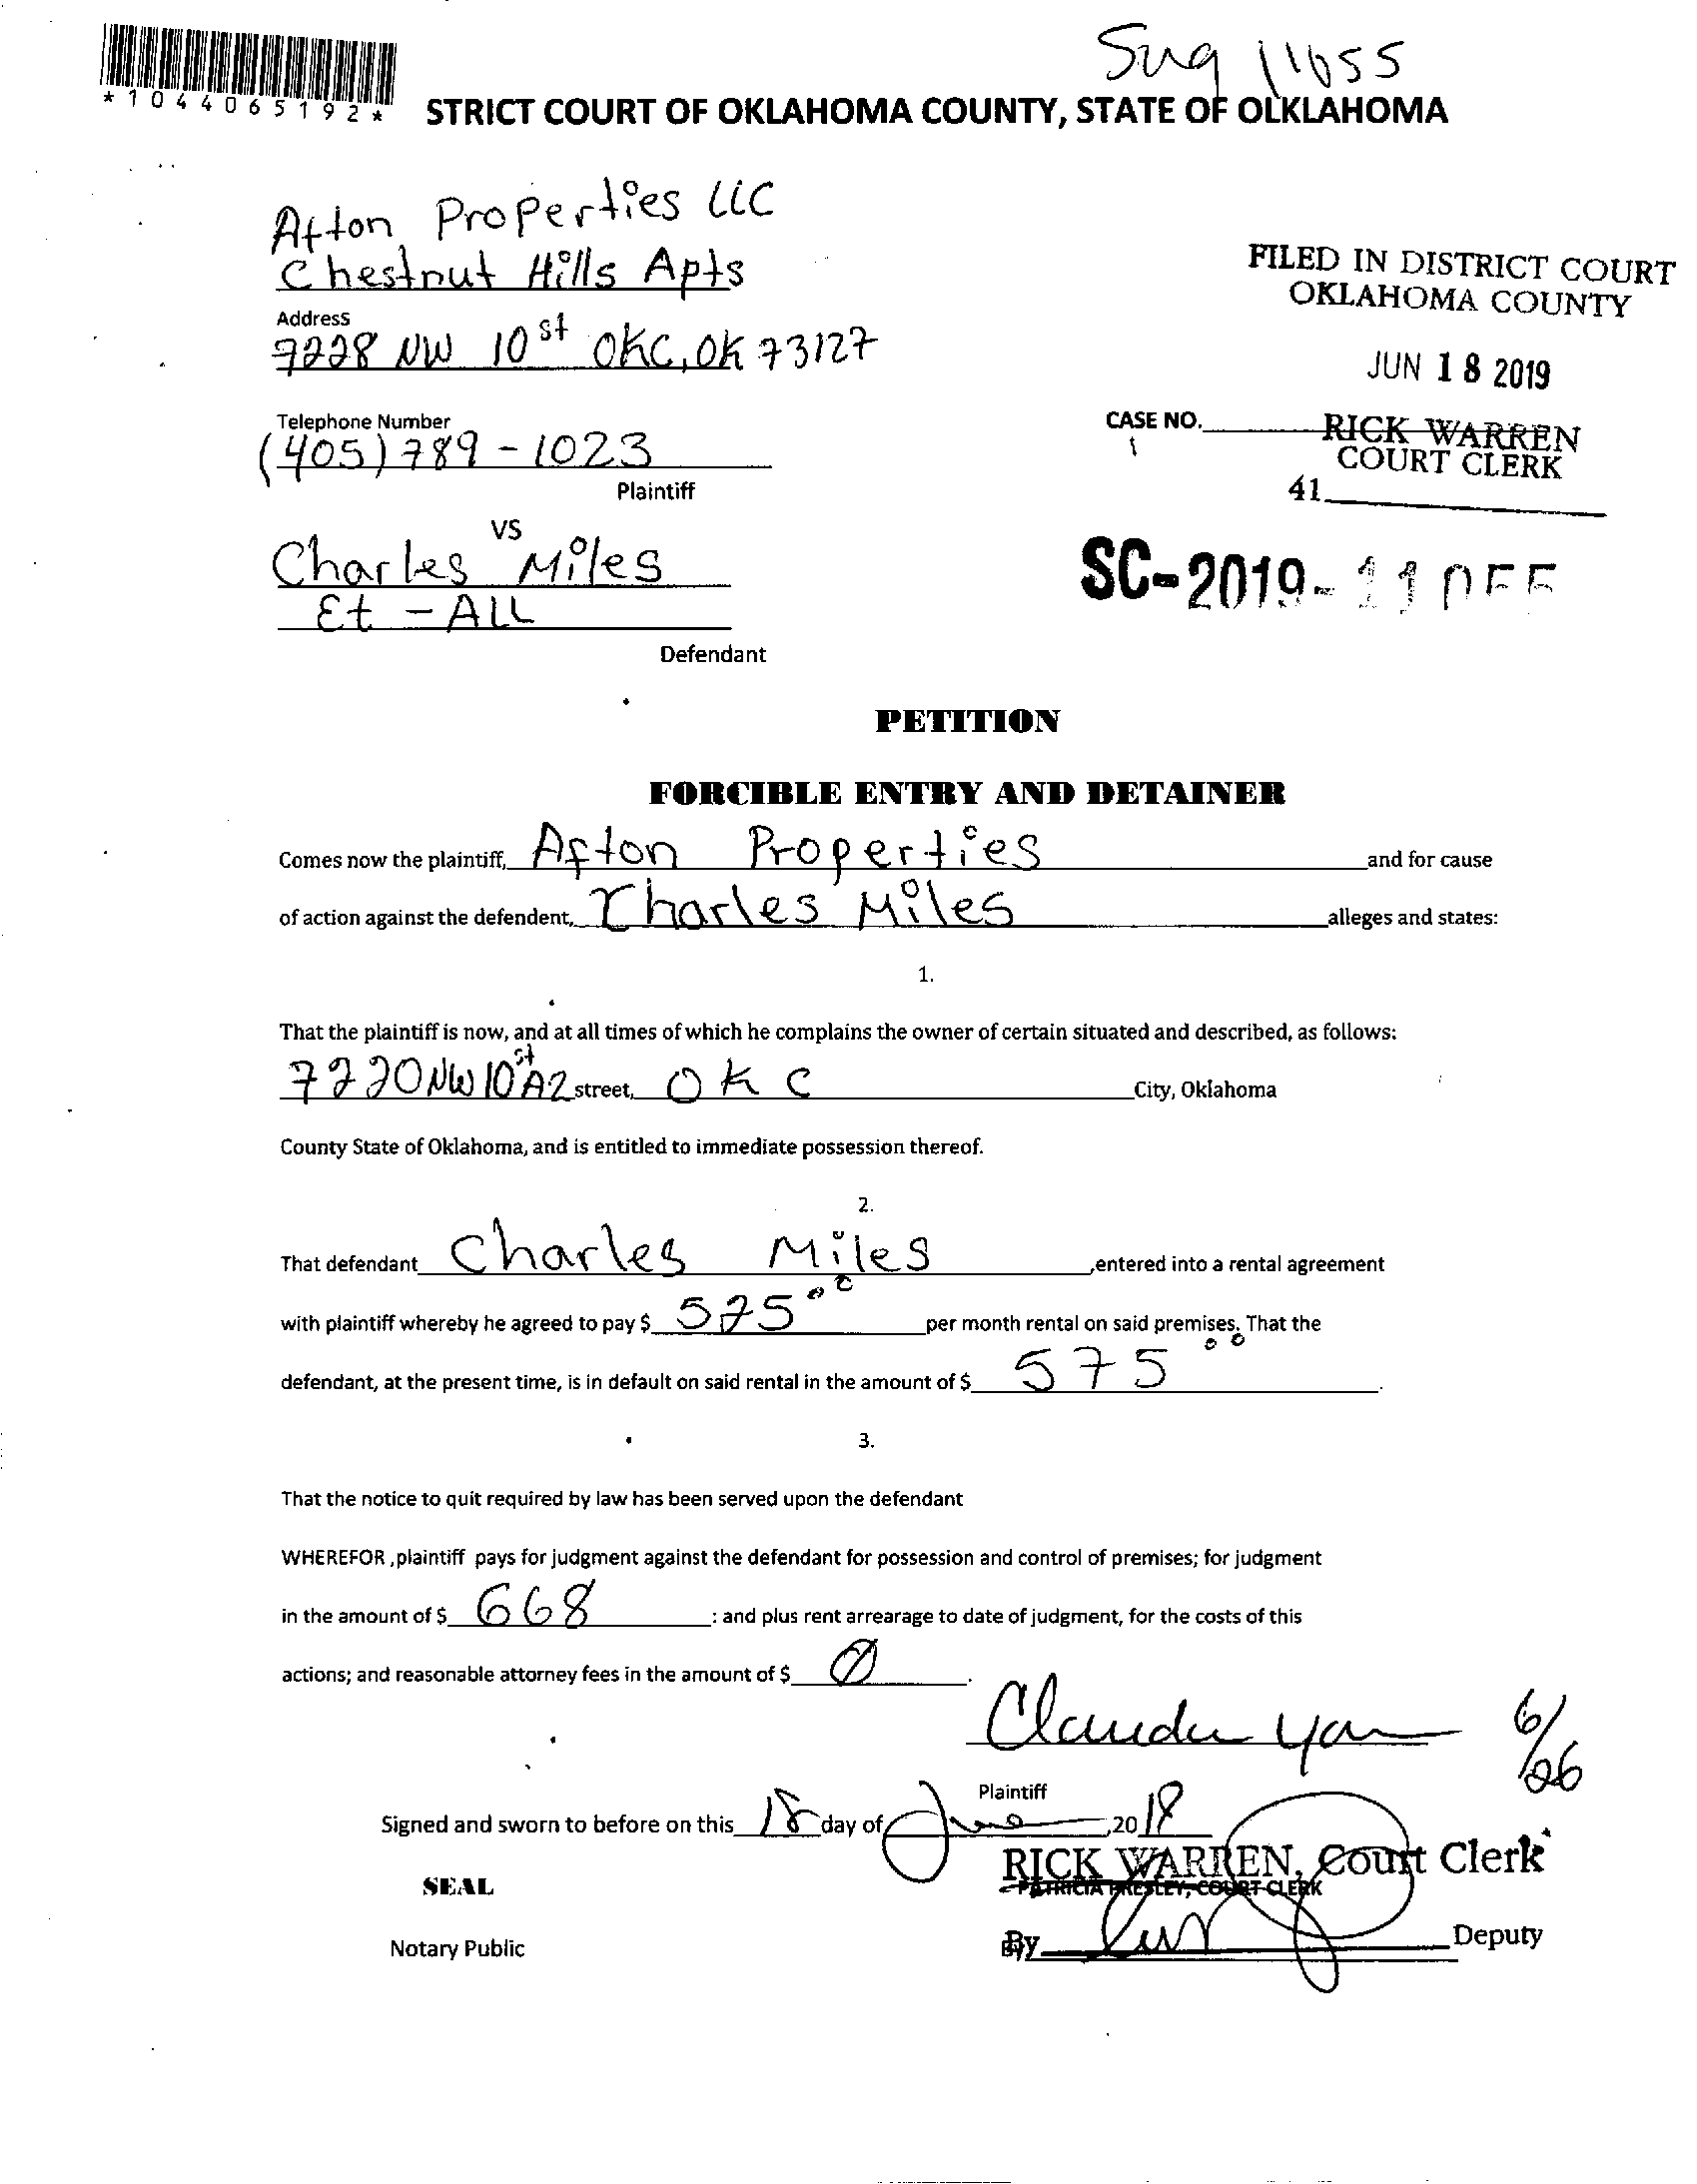 *1044065192*
STRICT COURT OF OKLAHOMA COUNTY, STATE OF OLKLAHOMA
Afton Properties LLC
Chestnut Hills Apts
FILED IN DISTRICT COURT
OKLAHOMA COUNTY
Address
7228 NW 10st OKC, OK 73127
JUN 18 2019
Telephone Number
(405) 789-1023
Plaintiff
CASE NO.
RICK WARREN
COURT CLERK
41
VS
Charles Miles
Et - ALL
Defendant
SC-2019-
PETITION
FORCIBLE ENTRY AND DETAINER
Comes now the plaintiff, Afton Properties and for cause
of action against the defendent, Charles Miles alleges and states:
1.
That the plaintiff is now, and at all times of which he complains the owner of certain situated and described, as follows:
7220 NW 10st A2 street, OKC City, Oklahoma
County State of Oklahoma, and is entitled to immediate possession thereof.
2.
That defendant Charles Miles ,entered into a rental agreement
with plaintiff whereby he agreed to pay $ 575 00 per month rental on said premises. That the
defendant, at the present time, is in default on said rental in the amount of $ 575 00 .
3.
That the notice to quit required by law has been served upon the defendant
WHEREFOR ,plaintiff pays for judgment against the defendant for possession and control of premises; for judgment
in the amount of $ 668 : and plus rent arrearage to date of judgment, for the costs of this
actions; and reasonable attorney fees in the amount of $ 0 .
6/26
Plaintiff
Signed and sworn to before on this 18 day of June ,20
RICK WARREN, Court Clerk
PATRICIA PRESLEY, COURT CLERK
SEAL
Notary Public
By Deputy